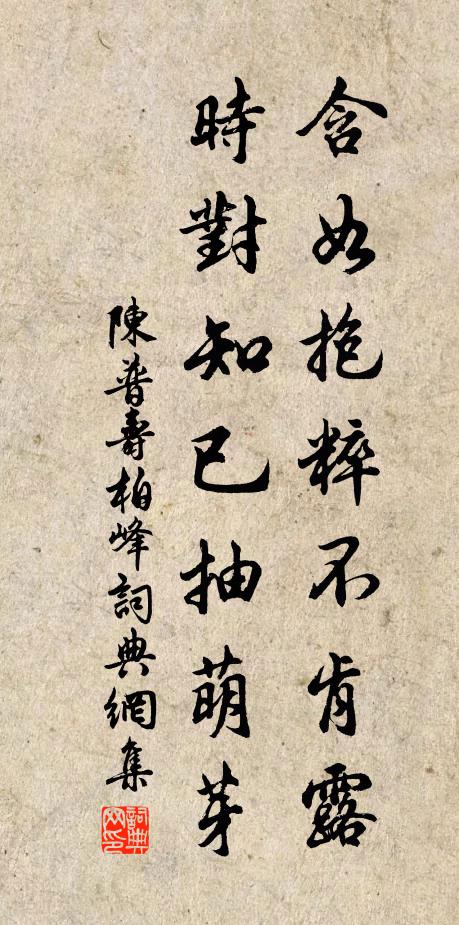 含如抱粹不肯露
時對知己抽萌芽
陳普壽柏峰詞典網集
詞典网印